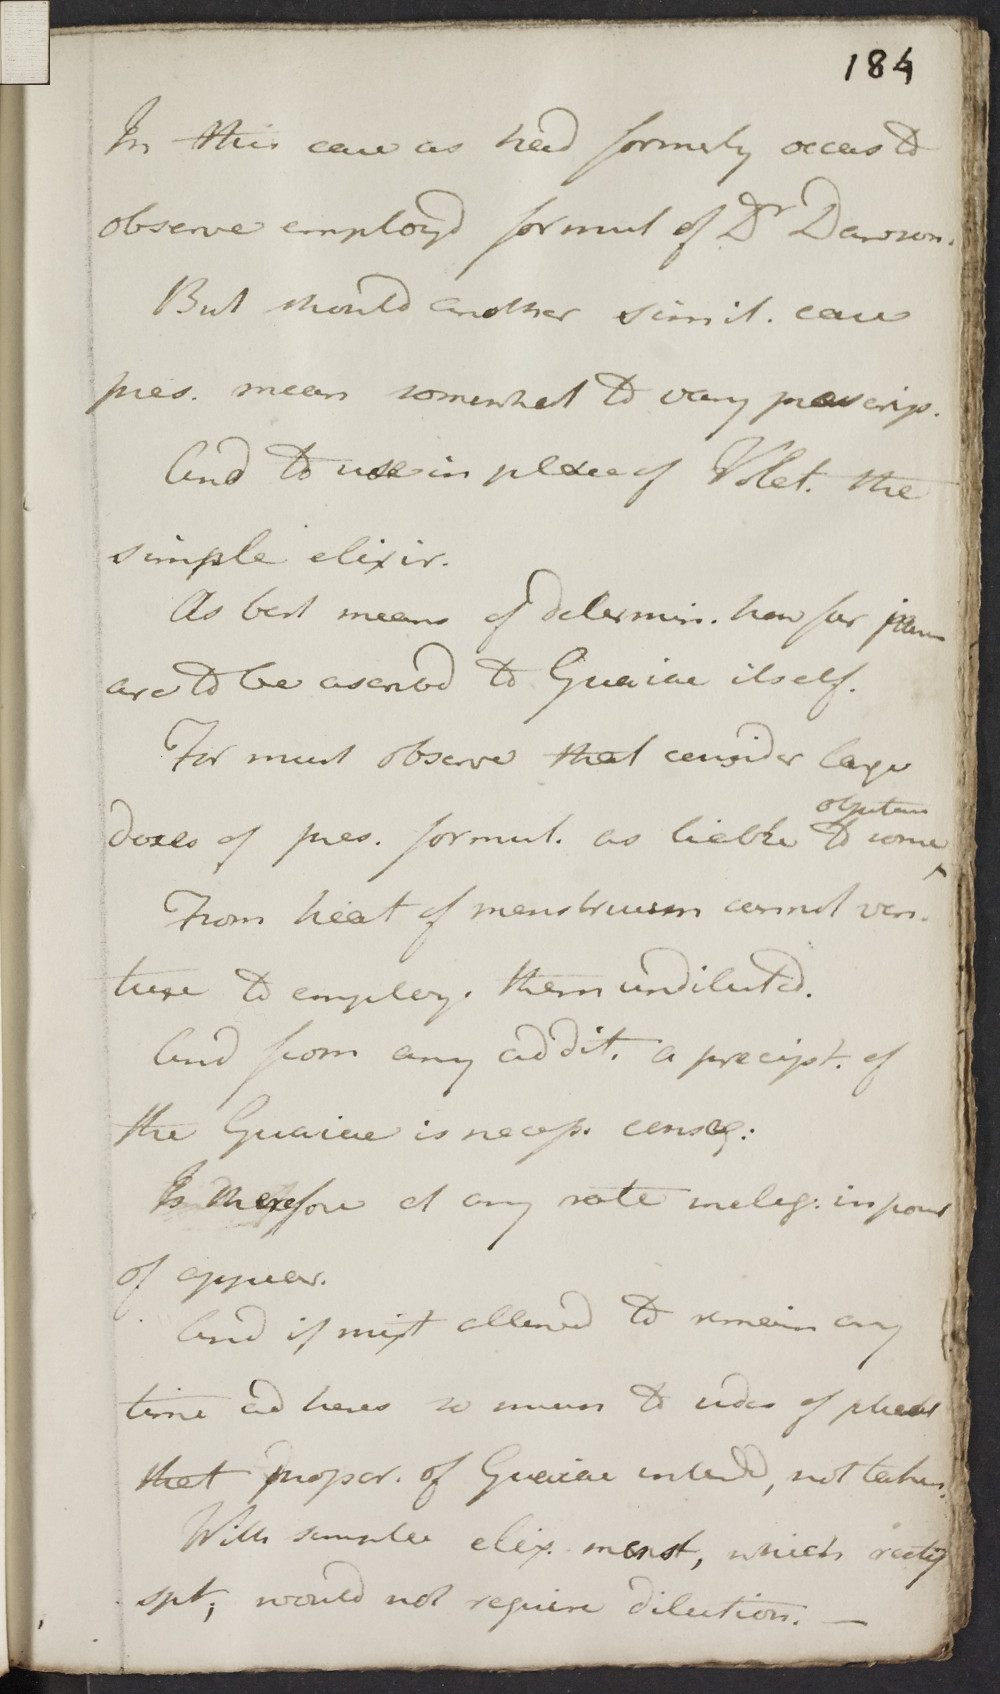 184
In this case as had formerly occas to
observe employd formul of Dr Dawson.
But should another simil. case
pres. mean somewhat to vary prescrip.
And to use in place of Volat. the
simple elixir.
As best means of determin. how far
are to be ascribd to Guaiac itself.
For must observe that consider large
objection
doses of pres. formul. as liable to some
From heat of menstruum cannot ven.
ture to employ. them undiluted.
And from any addit. a precipt. of
the Guaiac is necess. conseq:
Is therefore at any rate ineleg: in point
of appear.
And if mixt allowed to remain any
time adheres so much to sides of phial
that propor. of Guaiac intendd, not taken.
With simple elix. menst, which rectif
spt; would not require dilution. —